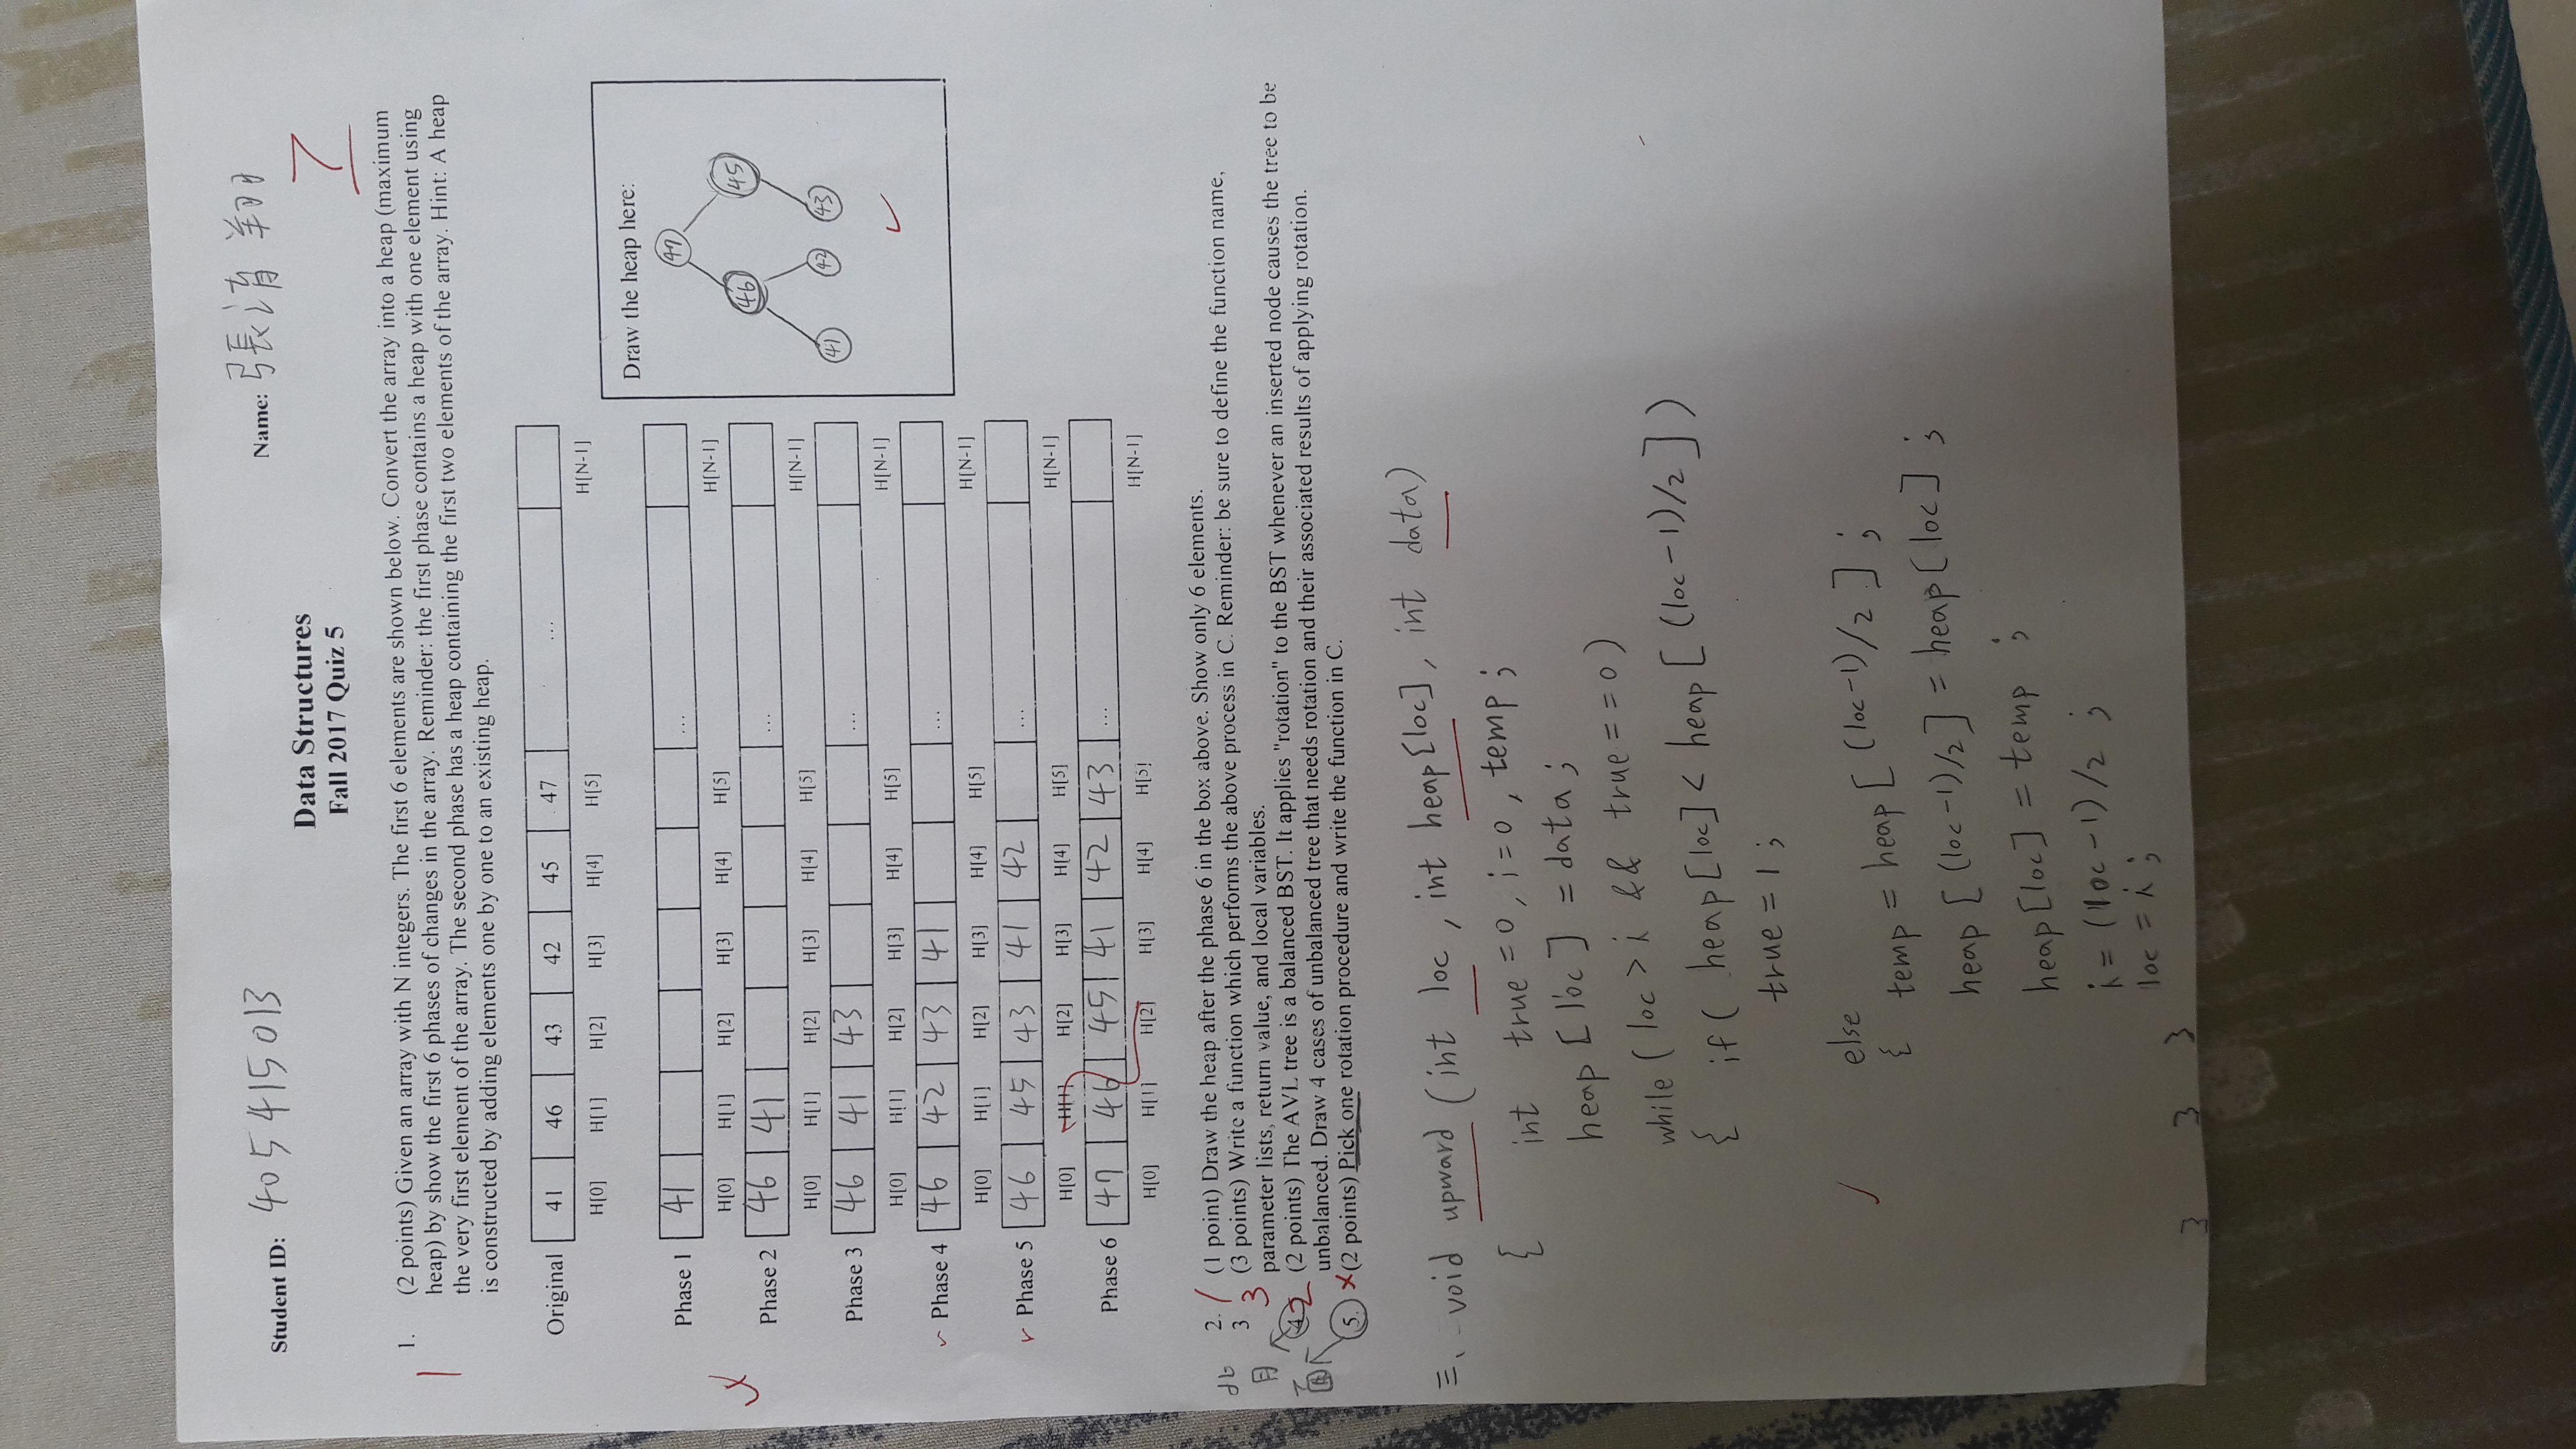 Student ID: 405415013
Name: 張清翔
Data Structures
Fall 2017 Quiz 5
7
1
1. (2 points) Given an array with N integers. The first 6 elements are shown below. Convert the array into a heap (maximum
heap) by show the first 6 phases of changes in the array. Reminder: the first phase contains a heap with one element using
the very first element of the array. The second phase has a heap containing the first two elements of the array. Hint: A heap
is constructed by adding elements one by one to an existing heap.
Original 41 46 43 42 45 47 ...
H[0] H[1] H[2] H[3] H[4] H[5] H[N-1]
Phase 1 41 ...
H[0] H[1] H[2] H[3] H[4] H[5] H[N-1]
Phase 2 46 41 ...
H[0] H[1] H[2] H[3] H[4] H[5] H[N-1]
Phase 3 46 41 43 ...
H[0] H[1] H[2] H[3] H[4] H[5] H[N-1]
Phase 4 46 42 43 41 ...
H[0] H[1] H[2] H[3] H[4] H[5] H[N-1]
Phase 5 46 45 43 41 42 ...
H[0] H[1] H[2] H[3] H[4] H[5] H[N-1]
Phase 6 47 46 45 41 42 43 ...
H[0] H[1] H[2] H[3] H[4] H[5] H[N-1]
Draw the heap here:
47
46 45
41 42 43
2. 1 (1 point) Draw the heap after the phase 6 in the box above. Show only 6 elements.
3 3 (3 points) Write a function which performs the above process in C. Reminder: be sure to define the function name,
parameter lists, return value, and local variables.
4. 2 (2 points) The AVL tree is a balanced BST. It applies "rotation" to the BST whenever an inserted node causes the tree to be
unbalanced. Draw 4 cases of unbalanced tree that needs rotation and their associated results of applying rotation.
5. (2 points) Pick one rotation procedure and write the function in C.
背面
三、void upward (int loc, int heap[loc], int data)
{ int true = 0, i = 0, temp;
heap [loc] = data;
while (loc > i && true == 0)
{ if ( heap [loc] < heap [ (loc-1)/2 ] )
true = 1;
else
{ temp = heap [ (loc-1)/2 ];
heap [ (loc-1)/2 ] = heap [loc];
heap [loc] = temp;
i = (loc-1)/2;
loc = i;
} } }